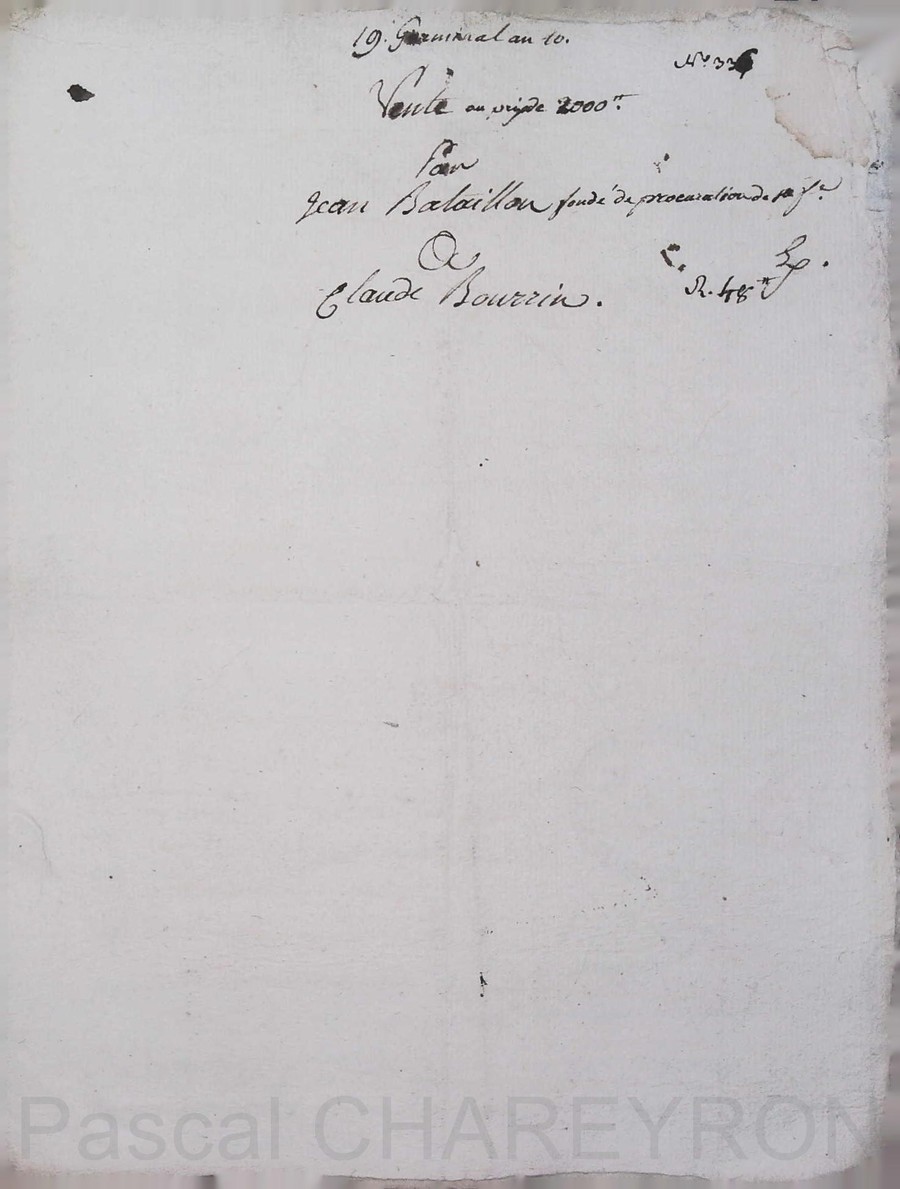 19. Germinal an 10.
N.º 336
Vente au prix de 2000 ₶.
Par
Jean Bataillon fondé de procuration de sa f.e
A
Claude Bourrin.
R. 48 ₶
Pascal CHAREYRON